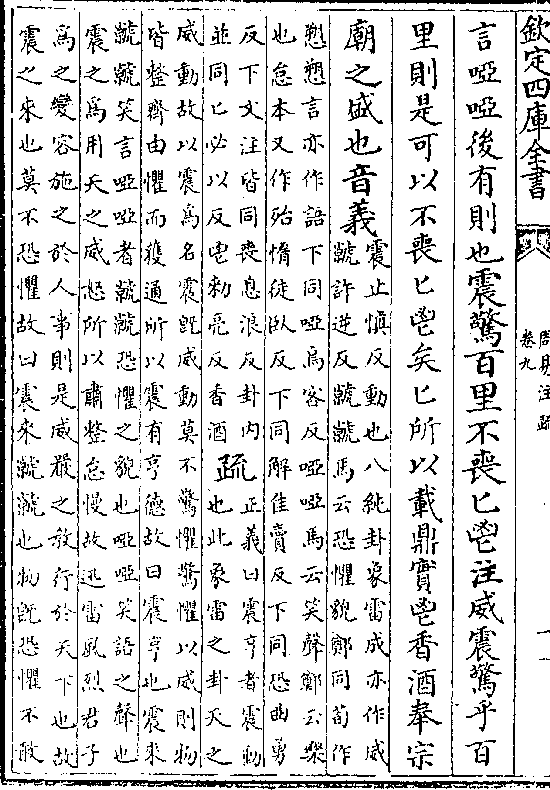 欽定四庫全書
周易注疏
卷九
言啞啞後有則也震驚百里不喪匕鬯注威震驚乎百
里則是可以不喪匕鬯矣匕所以載鼎實鬯香酒奉宗
廟之盛也音義
震止慎反動也八純卦象雷成亦作威
虩許逆反虩虩馬云恐懼貌鄭同荀作
愬愬言亦作語下同啞烏客反啞啞馬云笑聲鄭云樂
也怠本又作殆惰徒臥反下同解佳賣反下同恐曲勇
反下文注皆同喪息浪反卦内
並同匕必以反鬯勑亮反香酒
疏
正義曰震亨者震動
也此象雷之卦天之
威動故以震為名震既威動莫不驚懼驚懼以威則物
皆整齊由懼而獲通所以震有亨德故曰震亨也震來
虩虩笑言啞啞者虩虩恐懼之貌也啞啞笑語之聲也
震之為用天之威怒所以肅整怠慢故迅雷風烈君子
為之變容施之於人事則是威嚴之教行於天下也故
震之來也莫不恐懼故曰震來虩虩也物既恐懼不敢